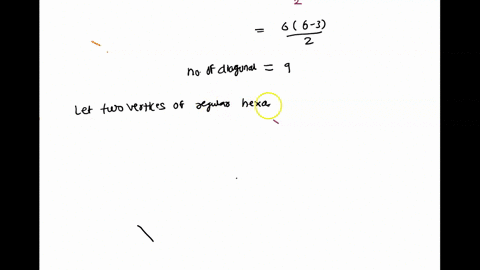 2
= 6(6-3)
2
no of diagonal = 9
Let two vertices of regular hexa